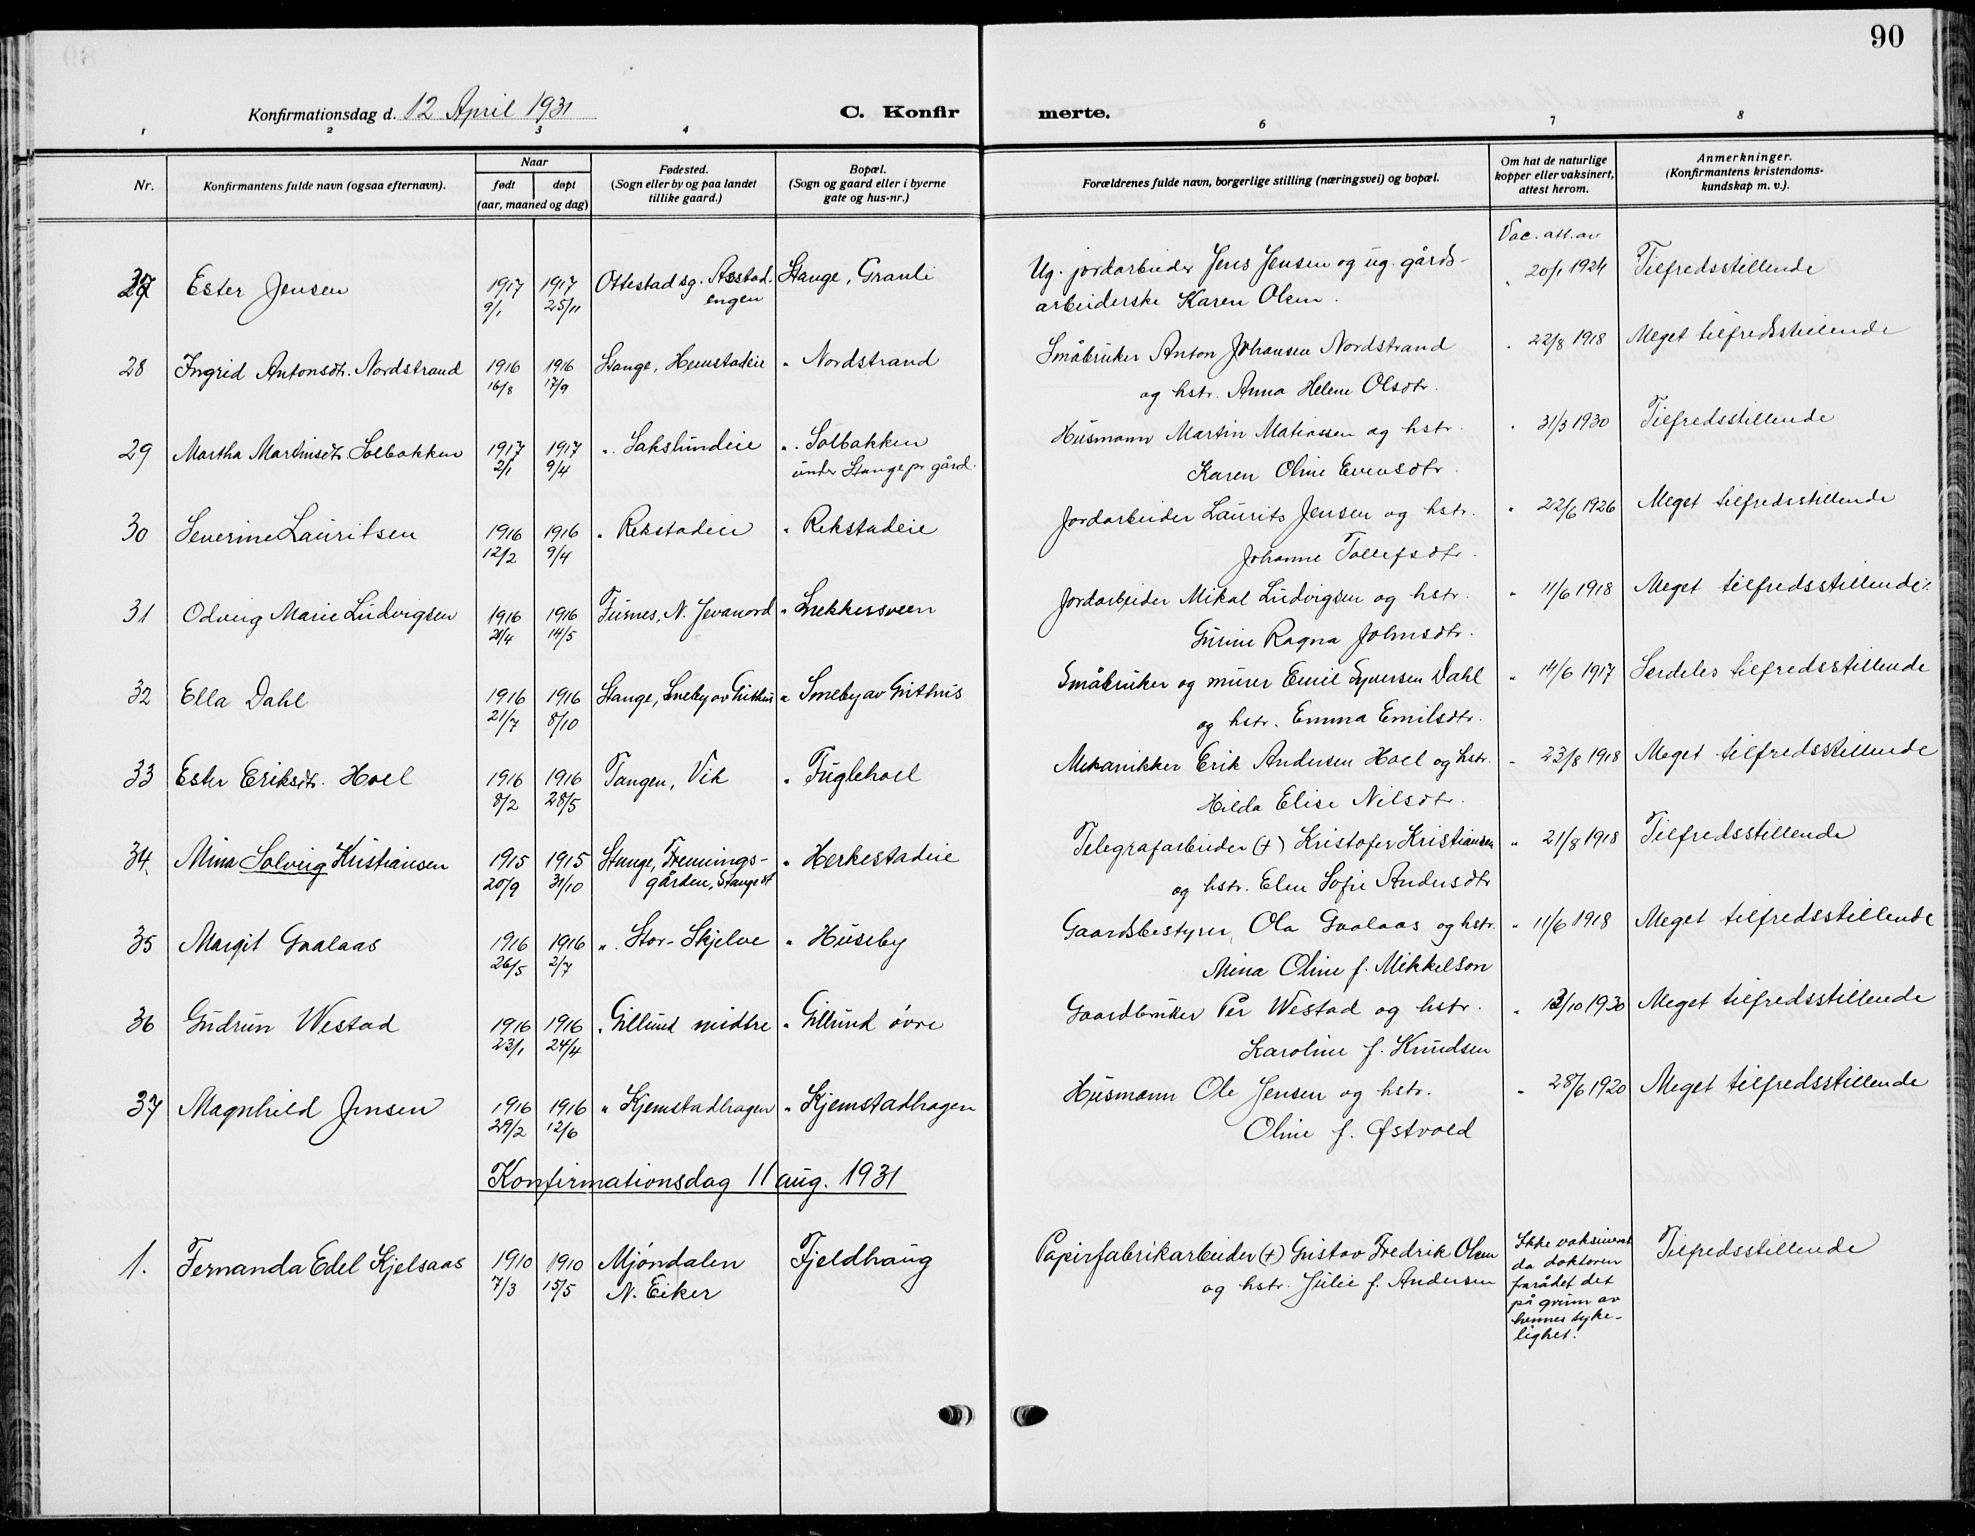 90
Konfirmationsdag d. 12 April 1931
C. Konfirmerte.
1 2 3 4 6 7 8
Nr.
Konfirmantens fulde navn (ogsaa efternavn).
Naar
født døpt
(aar, maaned og dag)
Fødested.
(Sogn eller by og paa landet
tillike gaard.)
Bopæl.
(Sogn og gaard eller i byerne
gate og hus-nr.)
Forældrenes fulde navn, borgerlige stilling (næringsvei) og bopæl.
Om hat de naturlige
kopper eller vaksinert,
attest herom.
Anmerkninger.
(Konfirmantens kristendoms-
kundskap m. v.).
Vac. att. av
27 Ester Jensen 1917 1917 Ottestad sg. Aastad. Stange, Granli Ug. jordarbeider Jens Jensen og ug. gårds- " 20/1 1924 Tilfredsstillende
9/1 25/11 engen arbeiderske Karen Olsen.
28 Ingrid Antonsdtr. Nordstrand 1916 1916 Stange, Hemstadeie " Nordstrand Småbruker Anton Johansen Nordstrand " 22/8 1918 Meget tilfredsstillende
16/8 17/9 og hstr. Anna Helene Olsdtr.
29 Martha Martinsdtr. Solbakken 1917 1917 " Sakslundeie " Solbakken Husmann Martin Matiassen og hstr. " 31/3 1930 Tilfredsstillende
2/1 9/4 under Stange pr. gård. Karen Oline Evensdtr.
30 Severine Lauritsen 1916 1916 " Rekstadeie " Rekstadeie Jordarbeider Laurits Jensen og hstr. " 22/6 1926 Meget tilfredsstillende
12/2 9/4 Johanne Tollefsdtr.
31 Odveig Marie Ludvigsen 1916 1916 Furnes, N. Jevanord " Lykkersveen Jordarbeider Mikal Ludvigsen og hstr. " 11/6 1918 Meget tilfredsstillende.
21/4 14/5 Gurine Ragna Johnsdtr.
32 Ella Dahl 1916 1916 Stange, Sneby av Guthus " Smeby av Guthus Småbruker og murer Emil Syversen Dahl " 14/6 1917 Serdeles tilfredsstillende
21/7 8/10 og hstr. Emma Emilsdtr.
33 Ester Eriksdtr. Hoel 1916 1916 Tangen, Vik " Fuglehoel Mekanikker Erik Andersen Hoel og hstr. " 23/8 1918 Meget tilfredsstillende
8/2 28/5 Hilda Elise Nilsdtr.
34. Mina Solveig Kristiansen 1915 1915 Stange, Frennings- " Herkestadeie Telegrafarbeider (+) Kristofer Kristiansen " 21/8 1918 Tilfredsstillende
20/9 31/10 gården, Stange st og hstr. Elen Sofie Andersdtr
35 Margit Gaalaas 1916 1916 " Stor-Skjelve " Huseby Gaardsbestyrer Ola Gaalaas og hstr. " 11/6 1918 Meget tilfredsstillende
26/5 2/7 Mina Oline f. Mikkelson
36 Gudrun Westad 1916 1916 " Gillund midtre " Gillund övre Gaardbruker Per Westad og hstr. " 13/10 1930 Meget tilfredsstillende
23/1 24/4 Karoline f. Knudsen
37 Magnhild Jensen 1916 1916 " Kjemstadhagen " Kjemstadhagen Husmann Ole Jensen og hstr. " 28/6 1920 Meget tilfredsstillende
29/2 12/6 Oline f. Østvold
Konfirmationsdag 11 aug. 1931
1. Fernanda Edel Kjelsaas 1910 1910 Mjøndalen Fjeldhaug Papirfabrikarbeider (+) Gustav Fredrik Olsen Ikke vaksinert Tilfredsstillende
7/3 15/5 N. Eiker og hstr. Julie f. Andersen da doktoren
frarådet det
på grunn av
hennes syke-
lighet.